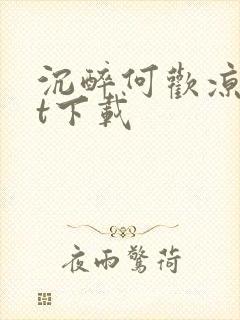 沉醉何歡凉
t下載
夜雨驚荷